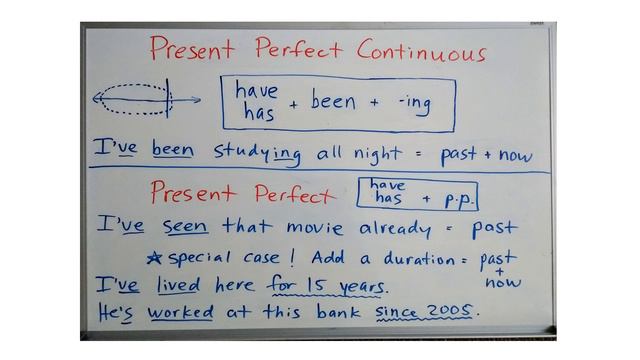 Present Perfect Continuous
have
has + been + -ing
I've been studying all night = past + now
Present Perfect
have
has + p.p.
I've seen that movie already = past
★ special case! Add a duration = past
+
now
I've lived here for 15 years.
He's worked at this bank since 2005.